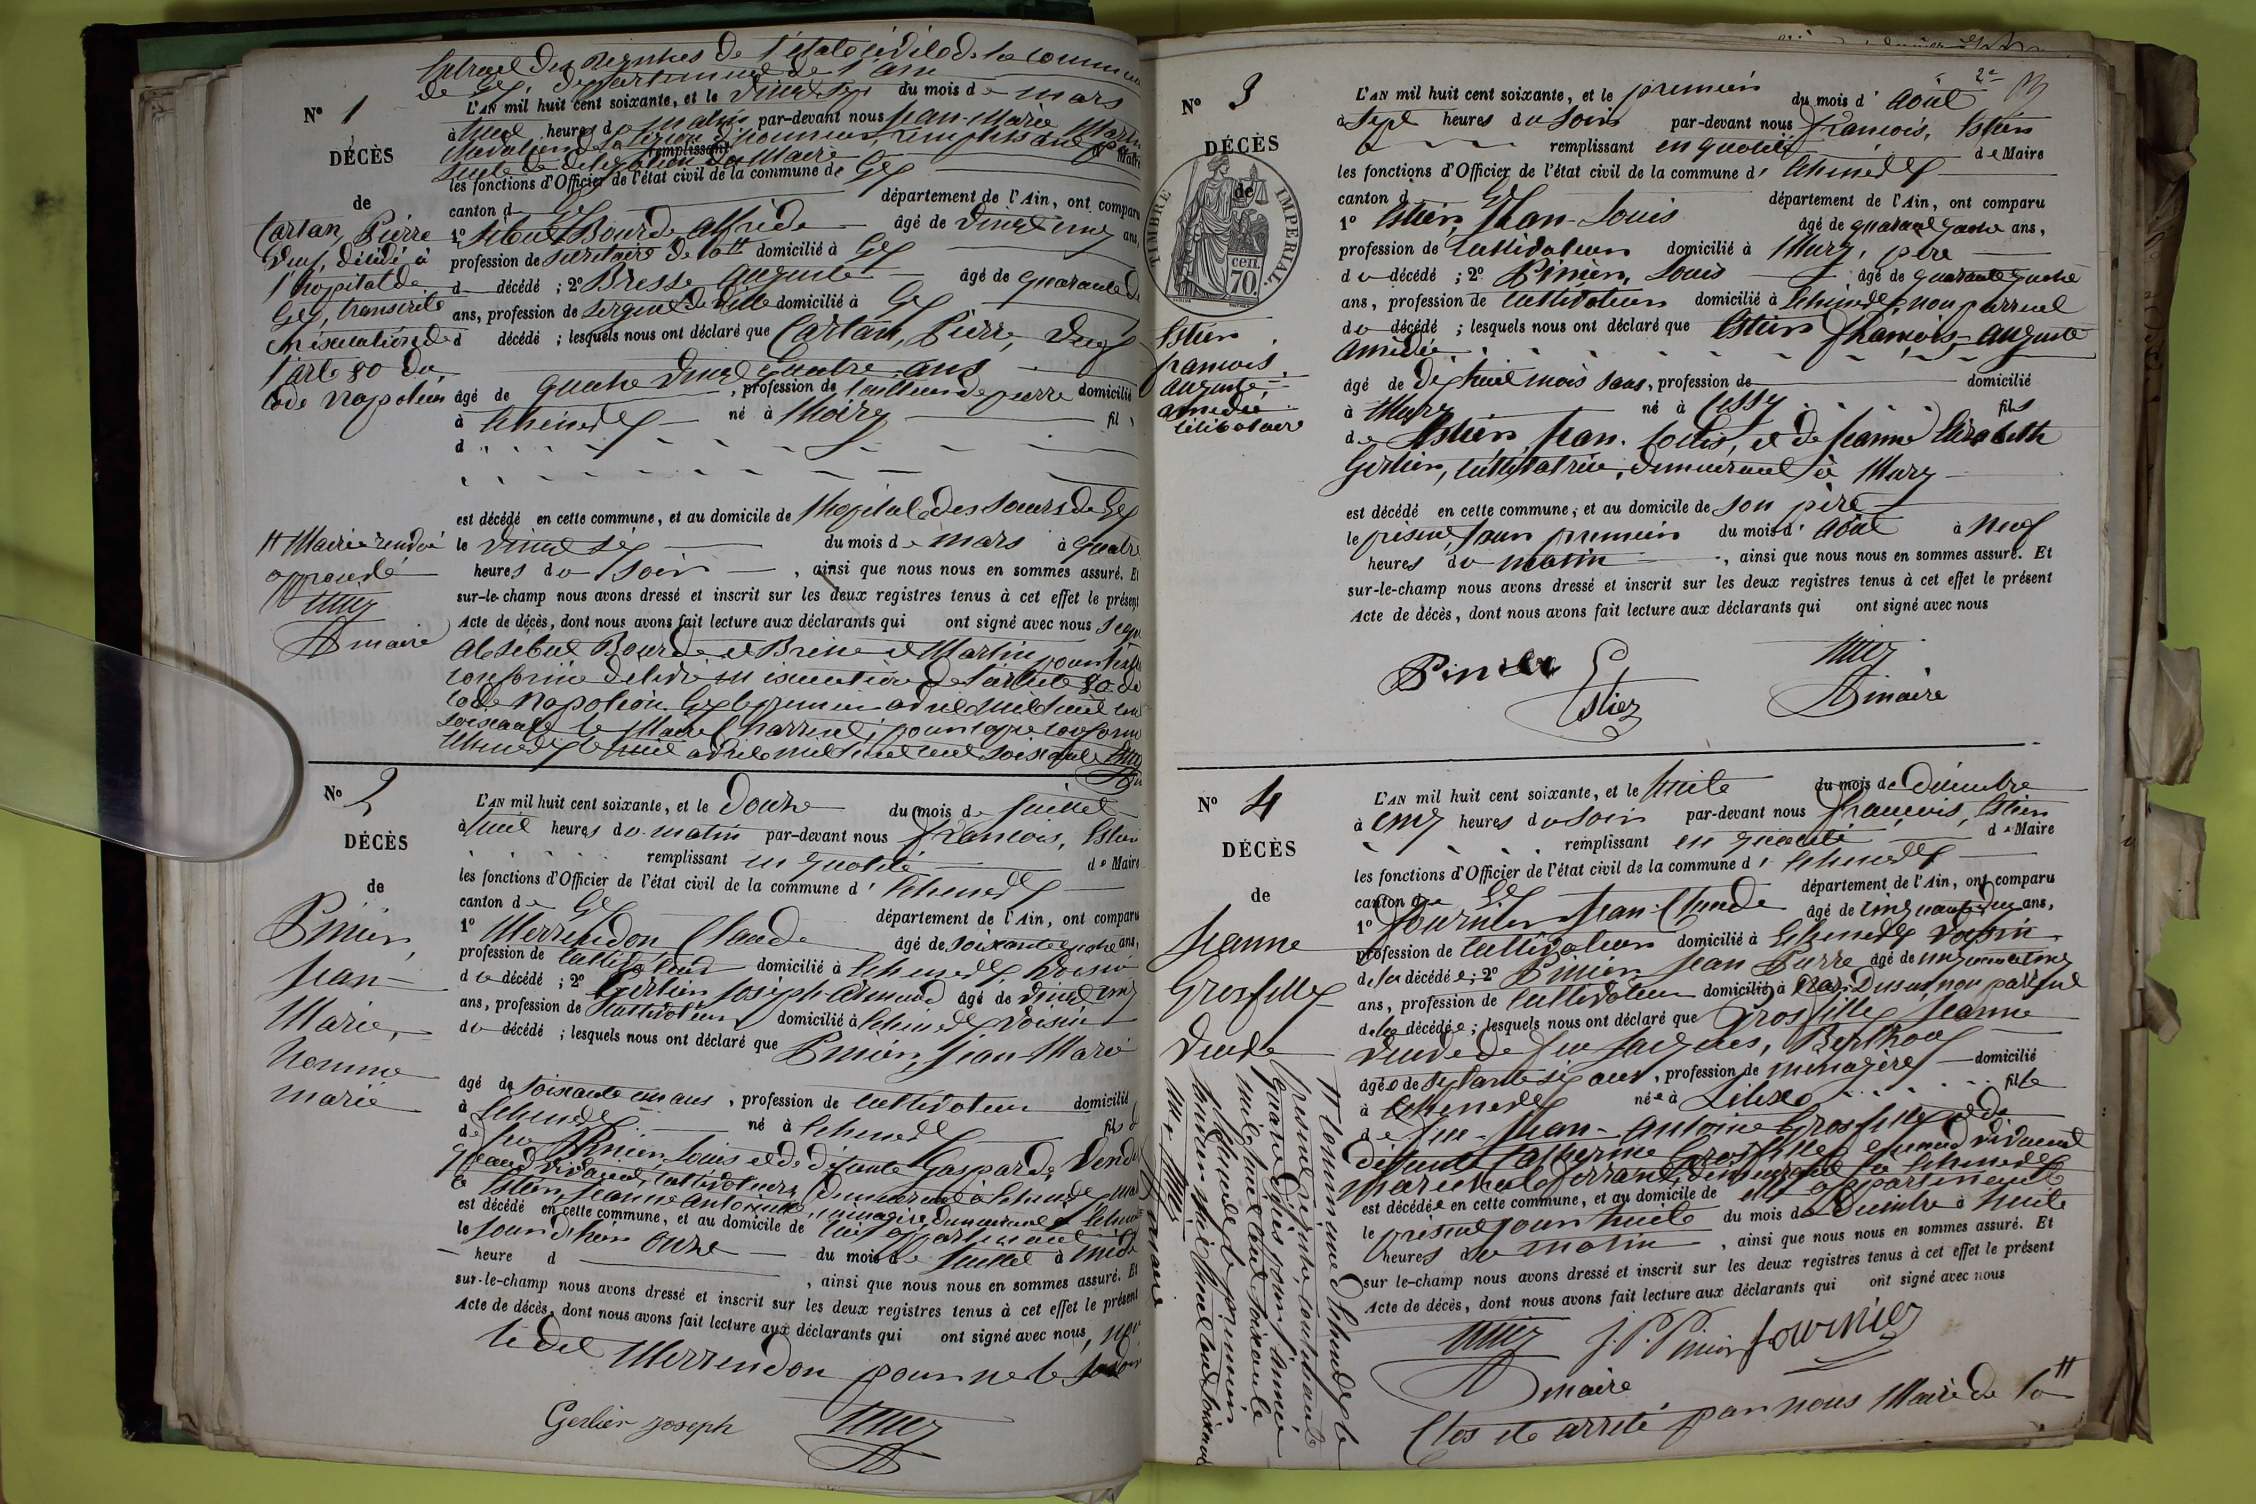 de Gex, département de l'Ain
N° 1
L'AN mil huit cent soixante, et le vingt six du mois de mars
à huit heures du matin par-devant nous Jean-Marie Martin
remplissant
suite de délégation du Maire
les fonctions d'Officier de l'état civil de la commune de Gex
canton de Gex département de l'Ain, ont comparu
1° Sibuet Bourde Alfrède âgé de vingt cinq ans,
profession de secrétaire de la # domicilié à Gex
d décédé ; 2° Bresse Auguste âgé de quarante
ans, profession de sergent de ville domicilié à Gex
d décédé ; lesquels nous ont déclaré que Cartan, Pierre, veuf
âgé de quatre vingt quatre ans, profession de tailleur de pierre domicilié
à Echenevex né à Moiry fil
d
est décédé en cette commune, et au domicile de l'hopital des soeurs de Gex
le vingt six du mois de mars à quatre
heures du soir, ainsi que nous nous en sommes assuré. Et
sur-le-champ nous avons dressé et inscrit sur les deux registres tenus à cet effet le présent
Acte de décès, dont nous avons fait lecture aux déclarants qui ont signé avec nous
Sibuet Bourde et Bresse et Martin pour
conforme délivré en exécution de l'article 80 du
code Napoléon Gex le premier avril mil huit cent
soixante le Maire pour copie conforme
Echenevex le huit avril mil huit cent soixante
DÉCÈS
de
Cartan, Pierre
veuf, décédé à
l'hopital de
Gex, transcrite
en exécution de
l'arte 80 du
code Napoléon
# Mairie renvoi
approuvé
maire
N° 2
DÉCÈS
de
Pinier,
Jean-
Marie,
homme
marié
L'AN mil huit cent soixante, et le douze du mois de Juillet
à huit heures du matin par-devant nous François, Estier
remplissant en qualité de Maire
les fonctions d'Officier de l'état civil de la commune d'Echenevex
canton de Gex département de l'Ain, ont comparu
1° Merrendon Claude âgé de soixante quatre ans,
profession de cultivateur domicilié à Echenevex voisin
du décédé ; 2° Gerlier Joseph Armand âgé de vingt cinq
ans, profession de cultivateur domicilié à Echenevex voisin
du décédé ; lesquels nous ont déclaré que Pinier, Jean-Marie
âgé de soixante un ans, profession de cultivateur domicilié
à Echenevex né à Echenevex fils
de feu Pinier, Louis et de défunte Gasparde
quand vivaient, cultivateurs demeurant à Echenevex
Estier, Jeanne Antoinette, ménagère demeurant à
est décédé en cette commune, et au domicile de lui appartenant
le jour d'hier onze du mois de Juillet à midi
heure d, ainsi que nous nous en sommes assuré. Et
sur-le-champ nous avons dressé et inscrit sur les deux registres tenus à cet effet le présent
Acte de décès, dont nous avons fait lecture aux déclarants qui ont signé avec nous, non
ledit Merrendon pour ne le savoir
Gerlier Joseph
N° 3
DÉCÈS
de
TIMBRE IMPÉRIAL
cen. 70.
Estier
François
Auguste
Amédée
célibataire
L'AN mil huit cent soixante, et le premier du mois d'Août
à sept heures du soir par-devant nous François, Estier
remplissant en qualité de Maire
les fonctions d'Officier de l'état civil de la commune d'Echenevex
canton d Gex département de l'Ain, ont comparu
1° Estier, Jean-Louis âgé de quarante quatre ans,
profession de cultivateur domicilié à Mury, père
du décédé ; 2° Pinier, Louis âgé de quarante quatre
ans, profession de cultivateur domicilié à Echenevex, non parent
du décédé ; lesquels nous ont déclaré que Estier François-Auguste
Amédée
âgé de dix huit mois sans, profession de domicilié
à Mury né à Cessy fils
de Estier Jean-Louis, et de Jeanne Elizabeth
Gerlier, cultivatrice, demeurant à Mury
est décédé en cette commune, et au domicile de son père
le présent jour premier du mois d'Août à neuf
heures du matin, ainsi que nous nous en sommes assuré. Et
sur-le-champ nous avons dressé et inscrit sur les deux registres tenus à cet effet le présent
Acte de décès, dont nous avons fait lecture aux déclarants qui ont signé avec nous
Pinier
Estier
maire
N° 4
DÉCÈS
de
Jeanne
Grosfillex
veuve
L'AN mil huit cent soixante, et le huit du mois de décembre
à cinq heures du soir par-devant nous François, Estier
remplissant en qualité de Maire
les fonctions d'Officier de l'état civil de la commune d'Echenevex
canton de Gex département de l'Ain, ont comparu
1° Fournier Jean-Claude âgé de cinquante ans,
profession de cultivateur domicilié à Echenevex voisin
de la décédée ; 2° Pinier Jean Pierre âgé de cinquante cinq
ans, profession de cultivateur domicilié à non parent
de la décédée ; lesquels nous ont déclaré que Grosfillex Jeanne
veuve de feu Jacques, Berthoux
âgée de septante six ans, profession de ménagère domicilié
à Echenevex née à Lelex fille
de feu Jean-Antoine Grosfillex et de
défunte Catherine Grosfillex quand vivaient
maréchal ferrant, demeurant à Echenevex
est décédée en cette commune, et au domicile de lui appartenant
le présent jour huit du mois de Décembre à huit
heures du matin, ainsi que nous nous en sommes assuré. Et
sur le-champ nous avons dressé et inscrit sur les deux registres tenus à cet effet le présent
Acte de décès, dont nous avons fait lecture aux déclarants qui ont signé avec nous
maire
J. P. Pinier Fournier
Clos et arrêté par nous Maire de la #
# commune d'Echenevex le
présent registre, contenant
quatre décès pour l'année
mil huit cent soixante
Echenevex le premier
janvier mil huit cent soixante